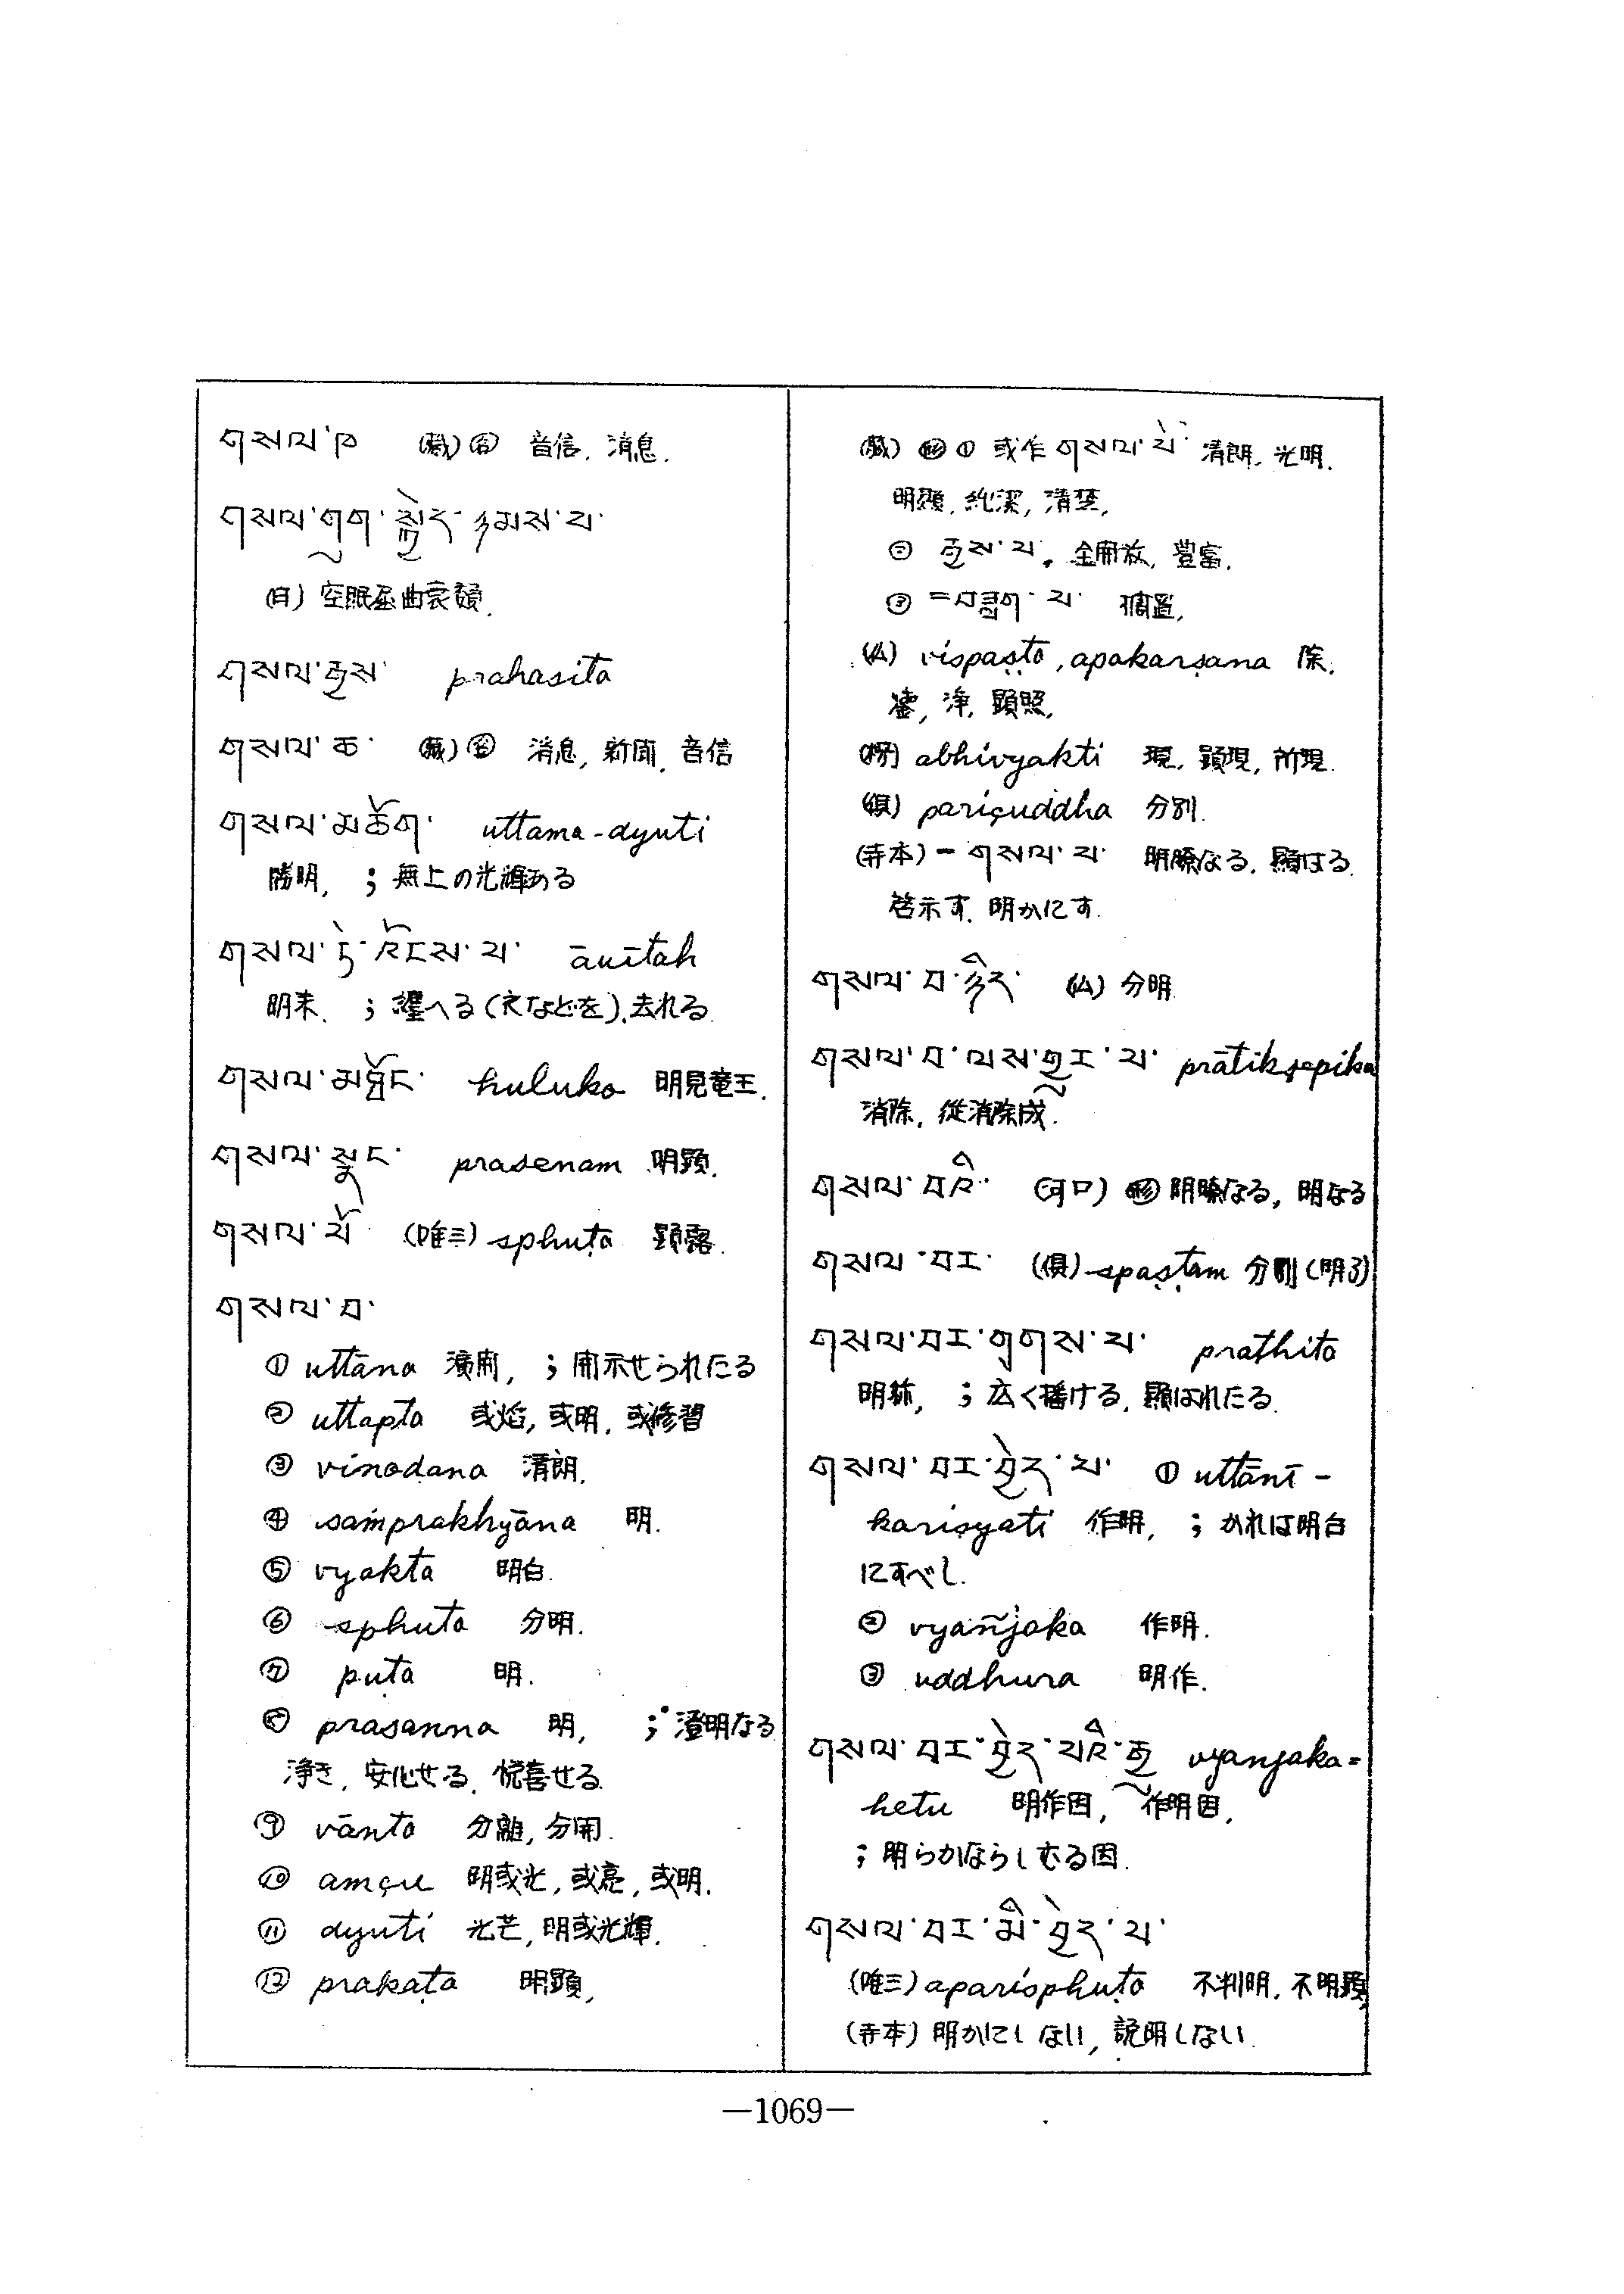 གསལ་ཁ (蔵) 名 音信, 消息.
གསལ་གུག་སྒྱེད་ཉམས་པ་
空眠屈曲衰頽.
གསལ་རྒྱས་ prahasita
གསལ་ཆ་ (蔵) 名 消息, 新聞, 音信
གསལ་མཆོག་ uttama-dyuti
勝明, ; 無上の光輝ある
གསལ་ཏེ་འོངས་པ་ ānītah
明来. ; 擢へる (衣などを), 去れる.
གསལ་མཐོང་ huluko 明見竜王.
གསལ་སྣང་ prasenam 明顕.
གསལ་པོ་ (唯三) sphuṭa 顕露.
གསལ་བ་
① uttāna 演開, ; 開示せられたる
② uttapta 或焰, 或明, 或修習
③ vinodana 清朗.
④ saṁprakhyāna 明.
⑤ vyakta 明白.
⑥ sphuta 分明.
⑦ puṭa 明.
⑧ prasanna 明, ; 澄明なる
浄き, 安化せる, 悦喜せる.
⑨ vānta 分離, 分開.
⑩ amçu 明或光, 或亮, 或明.
⑪ dyuti 光芒, 明或光輝.
⑫ prakaṭa 明顕,
(蔵) 形 ① 或作 གསལ་པོ་ 清朗, 光明.
明顕, 純潔, 清楚,
② རྒྱས་པ་. 全開放, 豊富.
③ 摘置,
(仏) vispaṣṭa, apakarṣana 除.
遣, 浄, 顕照,
abhivyakti 現, 顕現, 所現.
(倶) pariçuddha 分別.
(寺本) - གསལ་བ་ 明瞭なる, 顕はる.
啓示す, 明かにす.
གསལ་བ་ཉིད་ (仏) 分明
གསལ་བ་ལས་གྱུར་པ་ prātikṣepika
消除, 従消除成.
གསལ་བའི་ (河口) 形 明瞭なる, 明なる
གསལ་བར་ (倶) spaṣṭam 分別 (明る)
གསལ་བར་གྲགས་པ་ prathita
明称, ; 広く播ける, 顕はれたる.
གསལ་བར་བྱེད་པ་ ① uttānī-
kariṣyati 作明, ; かれは明白
にすべし.
② vyañjaka 作明.
③ uddhura 明作.
གསལ་བར་བྱེད་པའི་རྒྱུ vyanjaka=
hetu 明作因, 作明因,
; 明らかならしむる因.
གསལ་བར་མི་བྱེད་པ་
(唯三) aparisphuṭa 不判明, 不明顕,
(寺本) 明かにしない, 説明しない.
—1069—